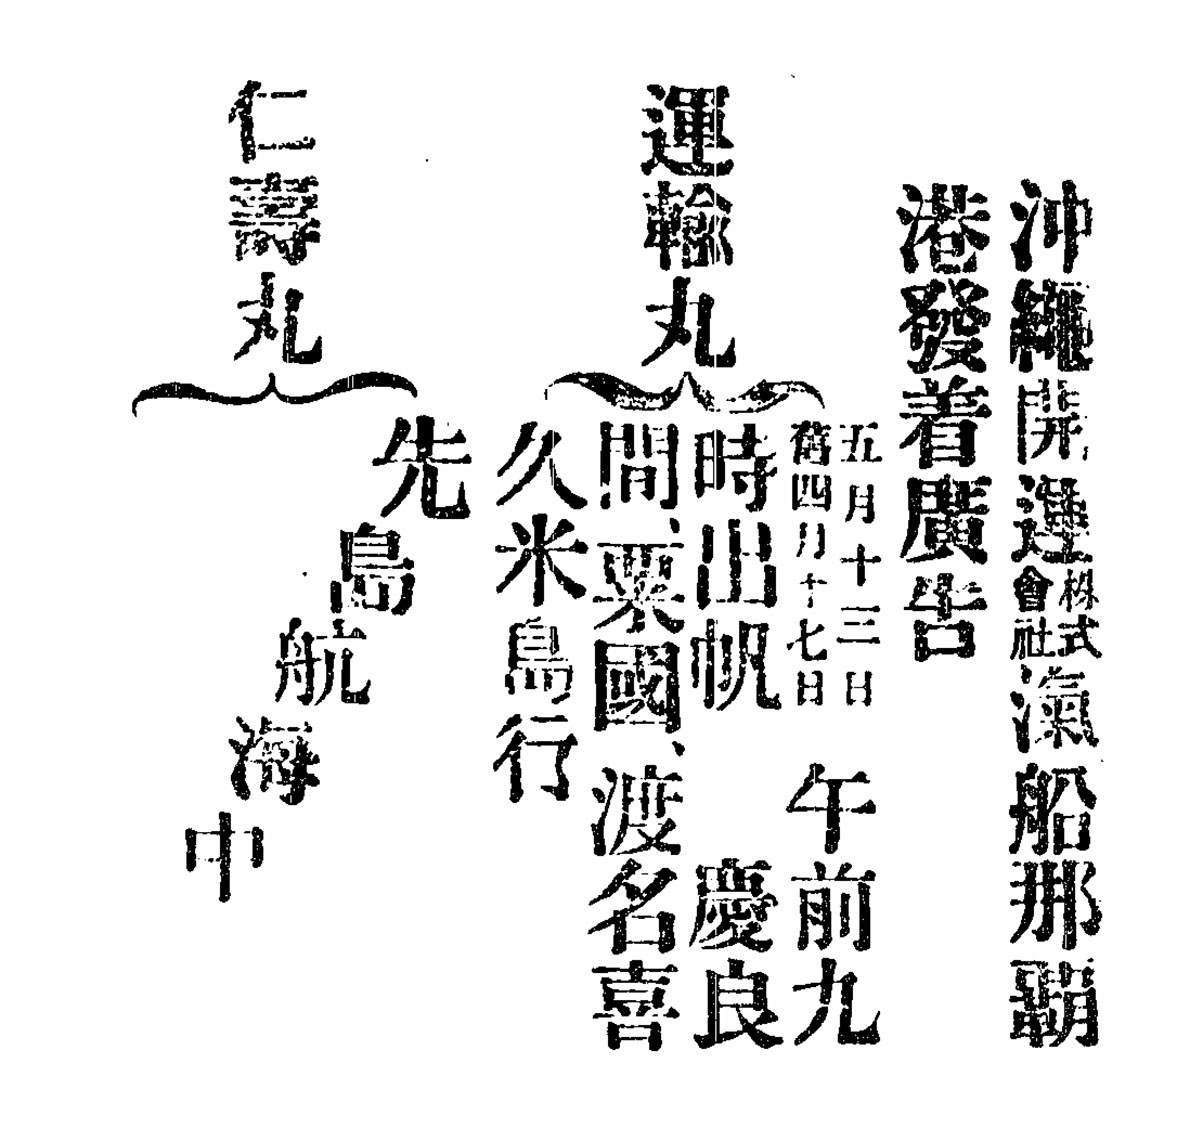 沖繩開運株式會社滊船那覇
港發着廣告
運輸丸
五月十三日
舊四月十七日
午前九
時出帆　慶良
間、粟國、渡名喜
久米島行
仁壽丸
先島航海中